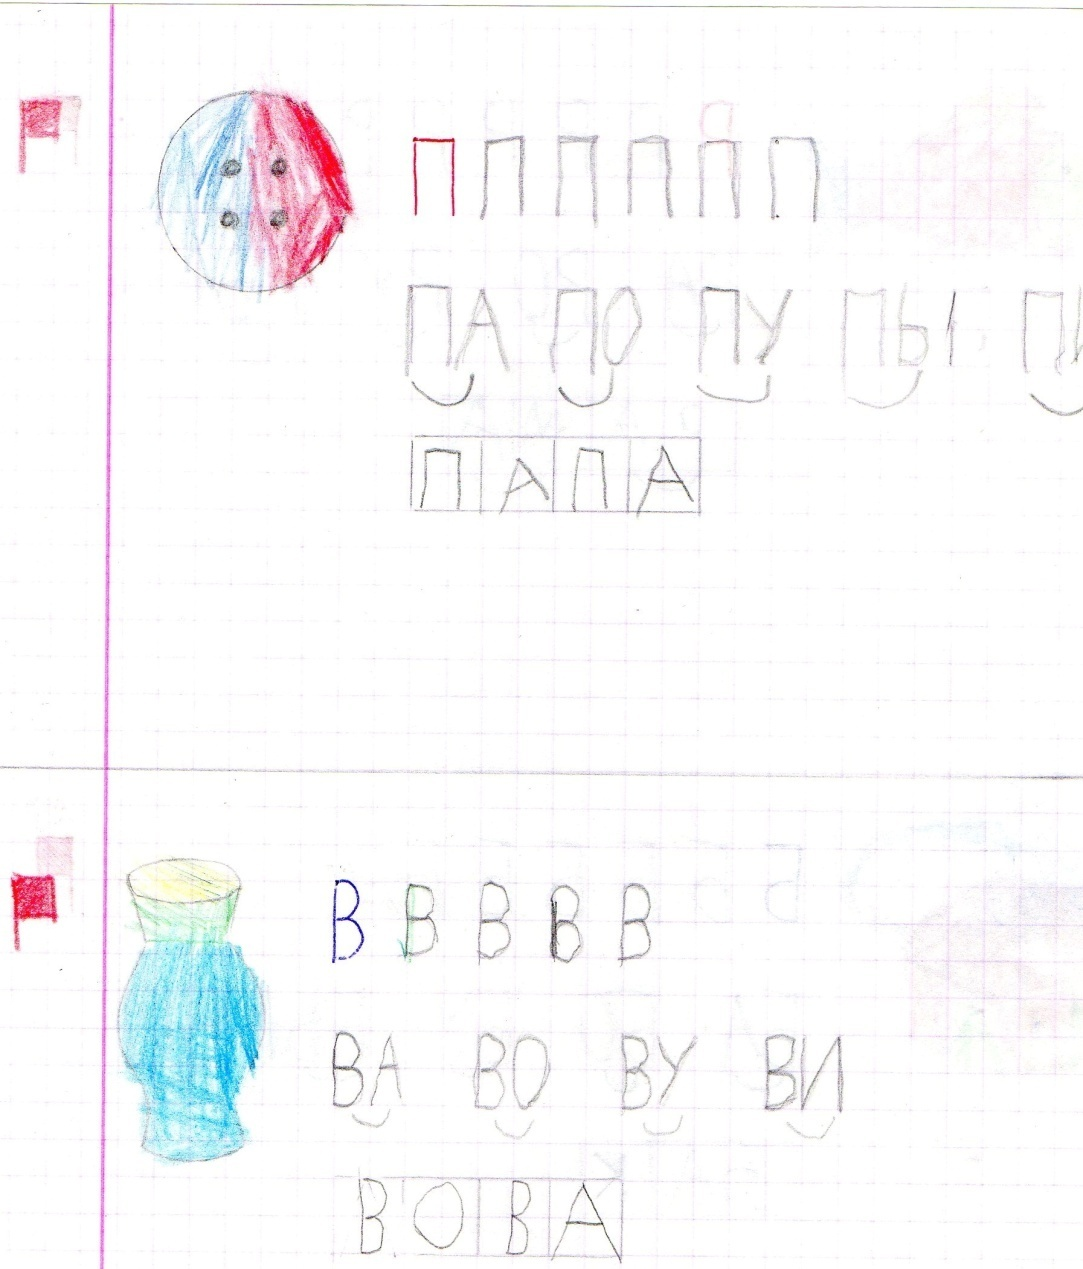 П П П П П П
ПА ПО ПУ ПЫ ПИ
ПАПА
В В В В В
ВА ВО ВУ ВИ
ВОВА